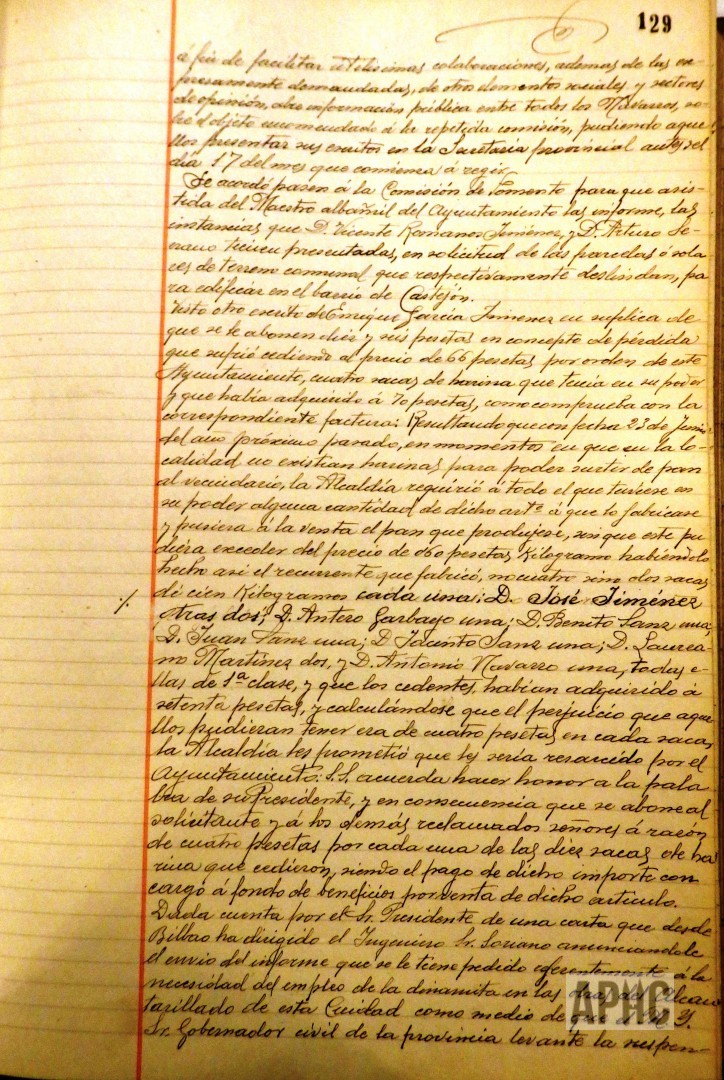 129
á fin de facilitar utilisimas colaboraciones, ademas de las ex-
presamente demandadas, de otros elementos sociales y sectores
de opinión, abre información pública entre todos los Navarros, so-
bre el objeto encomendado á la repetida comisión, pudiendo aque-
llos presentar sus escritos en la Secretaria provincial antes del
día 17 del mes que comienza á regir.
Se acordó pasen á la Comisión de Fomento para que asis-
tida del Maestro albañil del Ayuntamiento las informe, las
instancias que D. Vicente Romanos Jiménez, y D. Arturo Se-
rano tienen presentadas, en solicitud de las parcelas ó sola
res de terreno comunal que respectivamente deslindan, pa
ra edificar en el barrio de Castejón.
Visto otro escrito de Enrique García Jimenez en suplica de
que se le abonen diez y seis pesetas en concepto de pérdida
que sufrió cediendo al precio de 66 pesetas por orden de este
Ayuntamiento, cuatro sacas de harina que tenia en su poder
y que habia adquirido á 70 pesetas, como comprueba con la
correspondiente factura: Resultando que con fecha 23 de Junio
del año próximo pasado, en momentos en que en la lo-
calidad no existian harinas para poder surtir de pan
al vecindario, la Alcaldía requirió á todo el que tuviese en
su poder alguna cantidad de dicho artº á que lo fabricase
y pusiera á la venta el pan que produjese, sin que este pu
diera exceder del precio de 0'60 pesetas Kilogramo habiéndolo
hecho asi el recurrente que fabricó, no cuatro sino dos sacas
de cien Kilogramos cada una; D. José Jiménez
otras dos; D. Antero Garbayo una; D. Benito Sanz una;
D. Juan Sanz una; D. Jacinto Sanz una; D. Laurea-
no Martínez dos, y D. Antonio Navarro una, todas e-
llas de 1ª clase, y que los cedentes, habian adquirido á
setenta pesetas, y calculándose que el perjuicio que aque
llos pudieran tener era de cuatro pesetas en cada saca,
la Alcaldía les prometió que les sería resarcido por el
Ayuntamiento: S.S. acuerda hacer honor a la pala
bra de su Presidente, y en consecuencia que se abone al
solicitante y á los demás reclamados señores á razón
de cuatro pesetas por cada una de las diez sacas de ha
rina que cedieron, siendo el pago de dicho importe con
cargo á fondo de beneficios por venta de dicho articulo.
Dada cuenta por el Sr. Presidente de una carta que desde
Bilbao ha dirigido el Ingeniero Sr. Soriano anunciandole
el envio del informe que se le tiene pedido referentemente á la
necesidad del empleo de la dinamita en las obras del Alcan
tarillado de esta Ciudad como medio de que el M. Y.
Sr. Gobernador civil de la provincia levante la suspen-
APHC